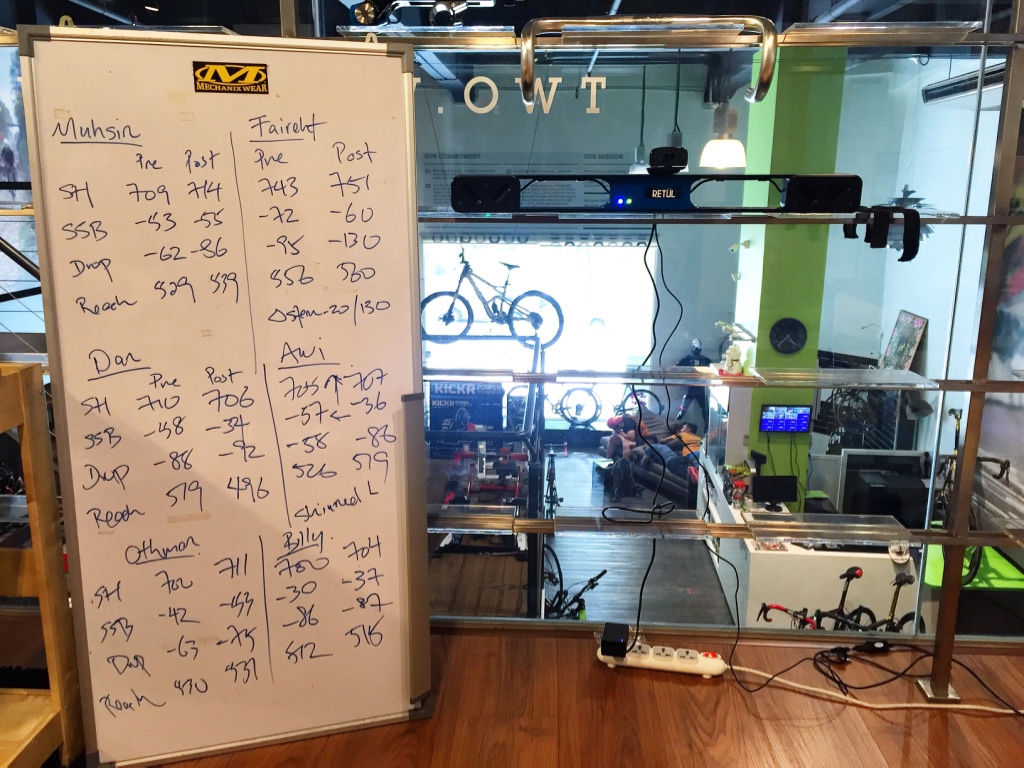 M
MECHANIX WEAR
Muhsin
Pre Post
SH 709 714
SSB -53 -55
Drop -62 -86
Reach 529 539
Pre Post
743 751
-72 -60
-95 -130
556 560
-20/130
Dan
Pre Post
SH 710 706
SSB -48 -34
Drop -88 -92
Reach 519 496
Awi
705 707
-57 ← -36
-58 -86
526 519
Shimmed L
Othman
SH 700 711
SSB -42 -53
Drop -63 -75
Reach 470 531
Billy
700 704
-30 -37
-86 -87
512 515
.OWT
OUR COMMITMENT
OUR MISSION
RETÜL
KICKR POWER
KICKR